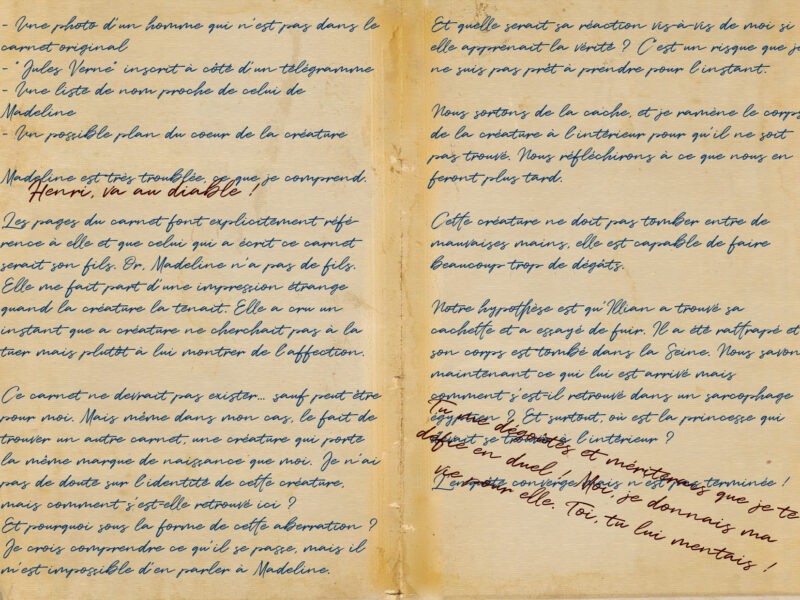 - Une photo d'un homme qui n'est pas dans le
carnet original
- "Jules Verne" inscrit à côté d'un télégramme
- Une liste de nom proche de celui de
Madeline
- Un possible plan du coeur de la créature
Madeline est très troublée, ce que je comprend.
Henri, va au diable !
Les pages du carnet font explicitement réfé-
rence à elle et que celui qui a écrit ce carnet
serait son fils. Or, Madeline n'a pas de fils.
Elle me fait part d'une impression étrange
quand la créature la tenait. Elle a cru un
instant que a créature ne cherchait pas à la
tuer mais plutôt à lui montrer de l'affection.
Ce carnet ne devrait pas exister... sauf peut être
pour moi. Mais même dans mon cas, le fait de
trouver un autre carnet, une créature qui porte
la même marque de naissance que moi. Je n'ai
pas de doute sur l'identité de cette créature,
mais comment s'est-elle retrouvé ici ?
Et pourquoi sous la forme de cette aberration ?
Je crois comprendre ce qu'il se passe, mais il
m'est impossible d'en parler à Madeline.
Et quelle serait sa réaction vis-à-vis de moi si
elle apprenait la vérité ? C'est un risque que je
ne suis pas prêt à prendre pour l'instant.
Nous sortons de la cache, et je ramène le corps
de la créature à l'intérieur pour qu'il ne soit
pas trouvé. Nous réfléchirons à ce que nous en
feront plus tard.
Cette créature ne doit pas tomber entre de
mauvaises mains, elle est capable de faire
beaucoup trop de dégâts.
Notre hypothèse est qu'Illian a trouvé sa
cachette et a essayé de fuir. Il a été rattrapé et
son corps est tombé dans la Seine. Nous savon
maintenant ce qui lui est arrivé mais
comment s'est-il retrouvé dans un sarcophage
égyptien ? Et surtout, où est la princesse qui
devait se trouver à l'intérieur ?
L'enquête converge mais n'est pas terminée !
Tu me dégoutes et mériterais que je te
défie en duel ! Moi, je donnais ma
vie pour elle. Toi, tu lui mentais !